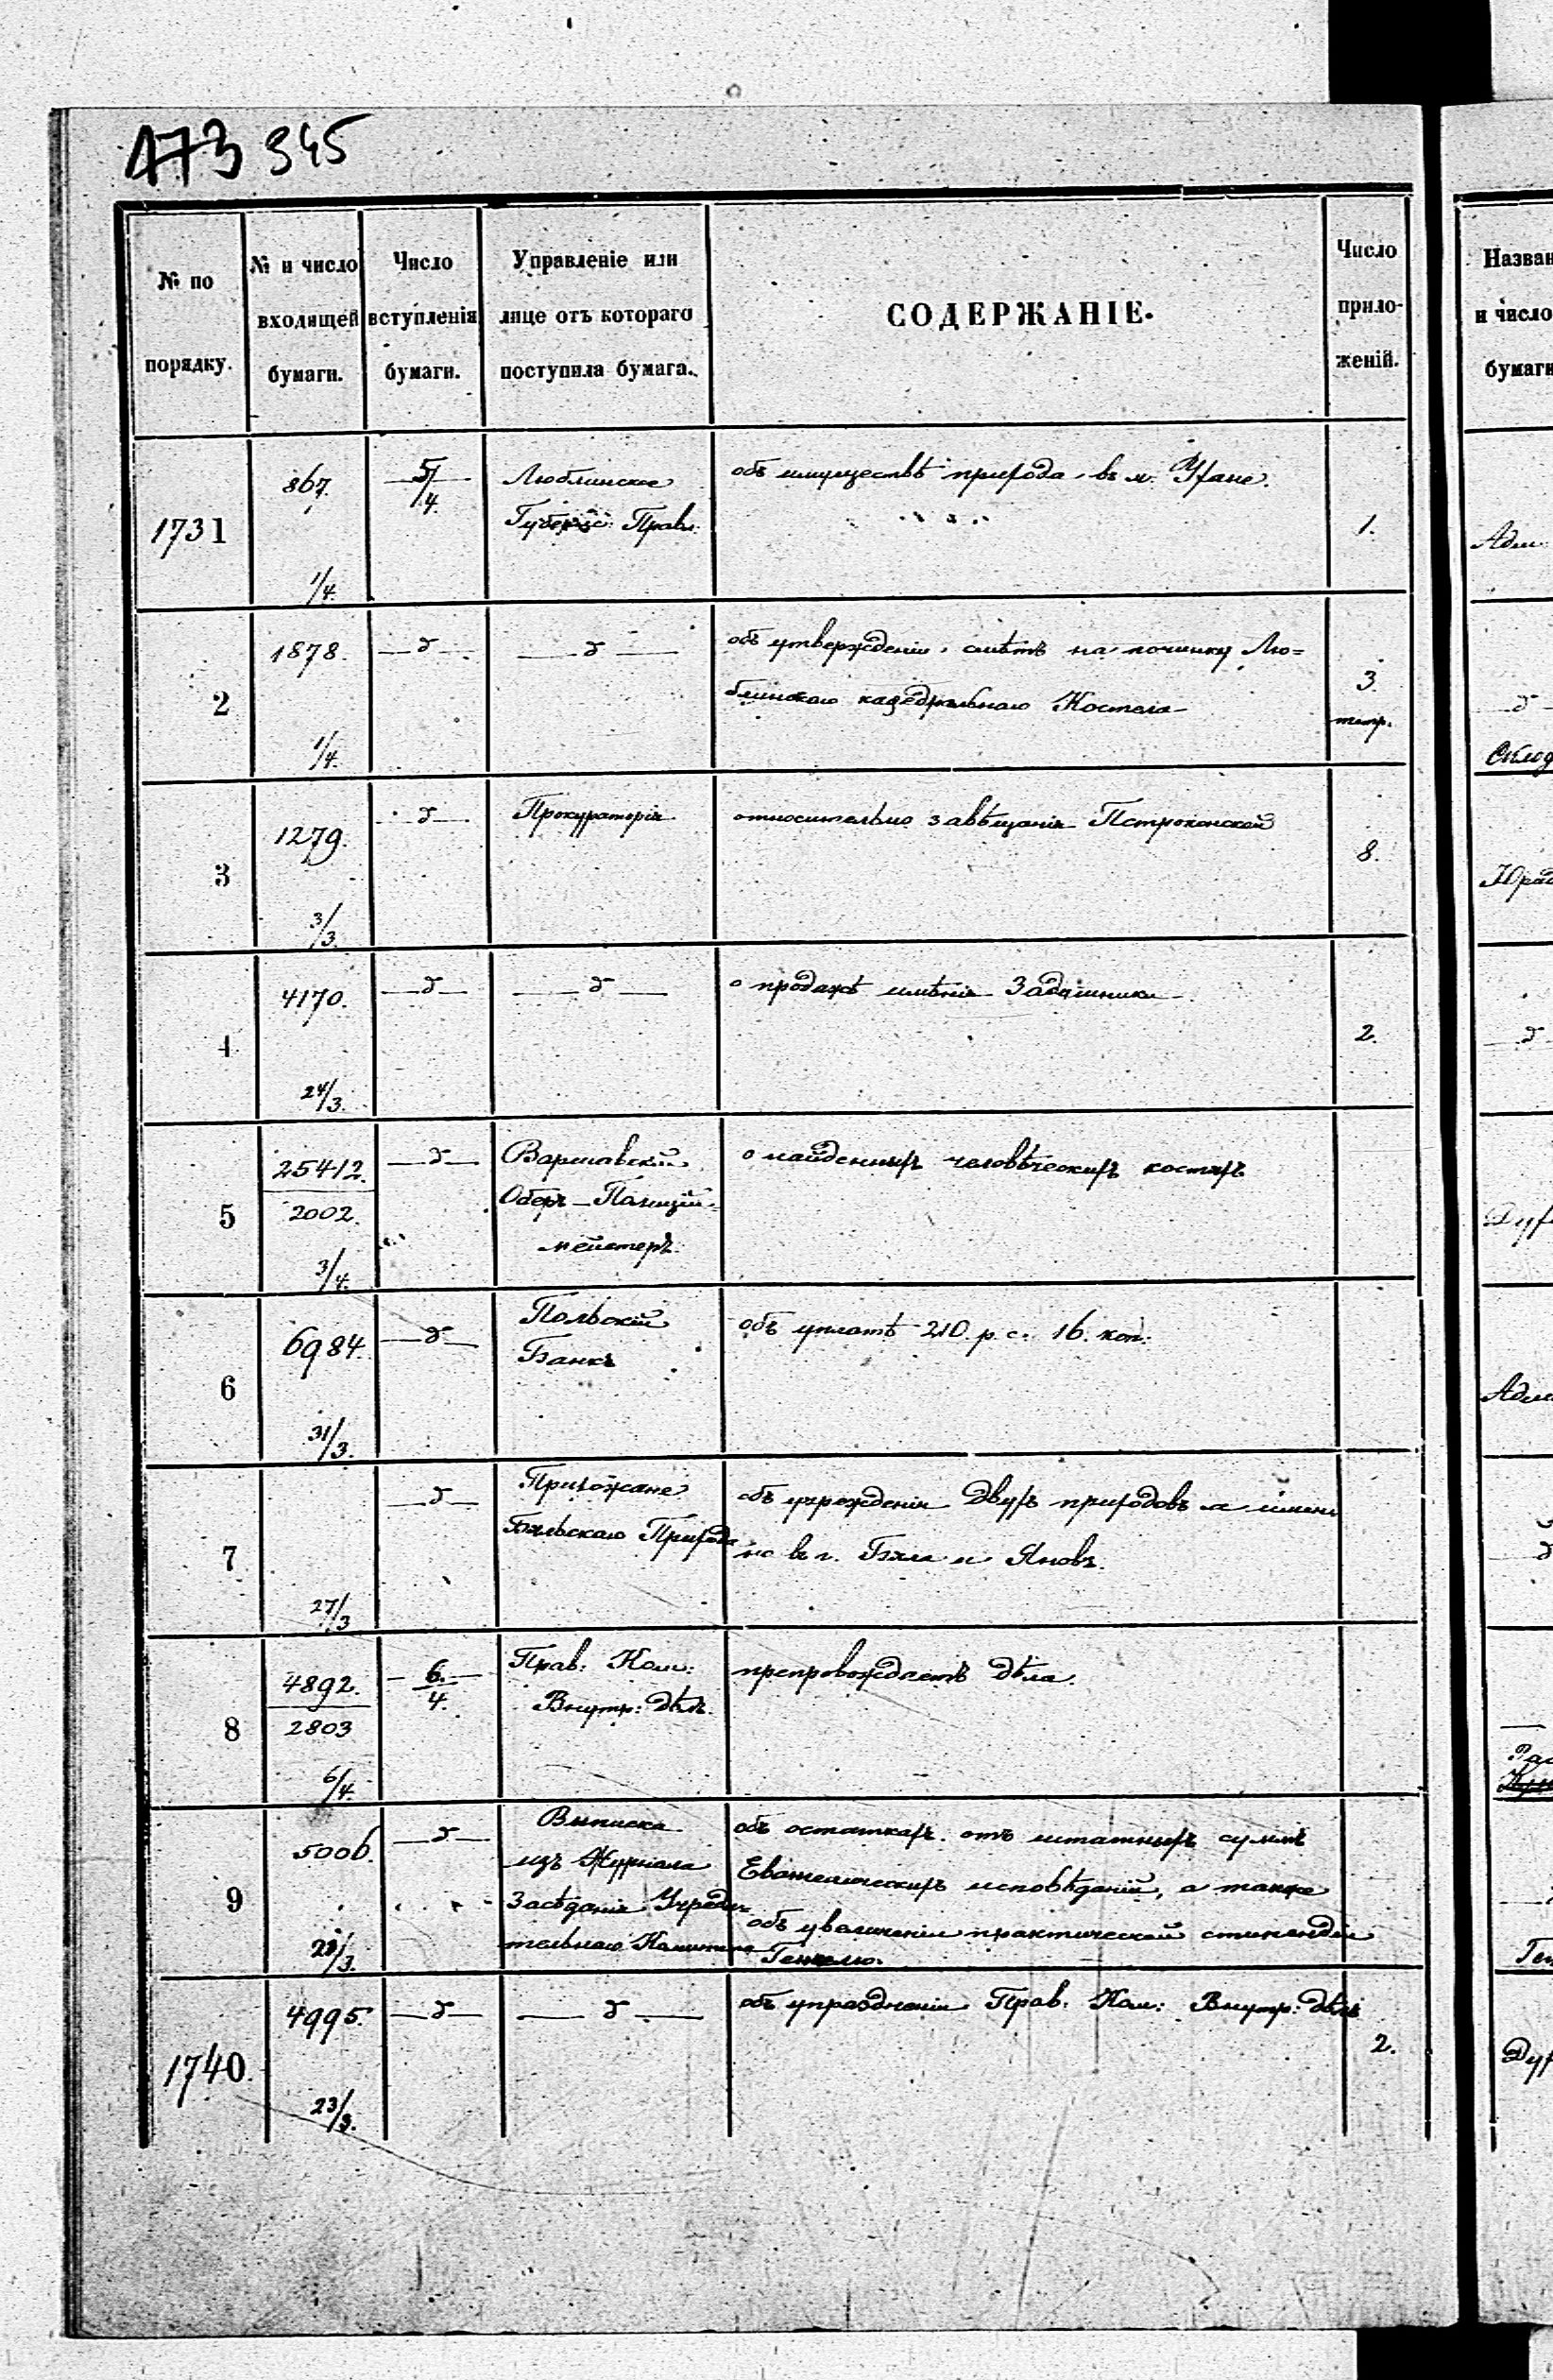 173 345
№ по порядку. | № и число входящей бумаги. | Число вступленія бумаги. | Управленіе или лице отъ котораго поступила бумага. | СОДЕРЖАНІЕ. | Число приложеній.
1731 | 867. 1/4. | 5/4. | Люблинское | объ имуществѣ прихода въ м. | 1.
Губернс: Правл:
2 | 1878. 1/4. | —д— | —д— | объ утвержденіи смѣтъ на починку Лю=
блинскаго кафедральнаго Костела | 3.
3 | 1279. 3/3. | —д— | Прокураторія | относительно завѣщанія Пстроконской | 8.
4 | 4170. 24/3. | —д— | —д— | о продажѣ имѣнія | 2.
5 | 25412. | —д— | Варшавскій | о найденныхъ человѣческихъ костяхъ
2002. | Оберъ-Полицій=
3/4. | мейстеръ.
6 | 6984. | —д— | Польскій | объ уплатѣ 210. р. с. 16. коп.
31/3. | Банкъ
7 | 27/3 | —д— | Прихожане | объ учрежденіи двухъ приходовъ а имен
Бяльскаго Прихода | но въ г. Бяла и Яновъ.
8 | 4892. | 6./4. | Прав: Ком: | препровождаетъ дѣла.
2803 | Внутр: Дѣлъ.
6/4.
9 | 5006. | —д— | Выписка | объ остаткахъ отъ штатныхъ суммъ
изъ Журнала | Евангелическихъ исповѣданій, а также
Засѣданія Учреди= | объ увеличеніи практической стипендіи
тельнаго Комитета
1740. | 4995. | —д— | —д— | объ упраздненіи Прав: Ком: Внутр: Дѣлъ | 2.
23/3.
Назван
и число
бумаги
Адм